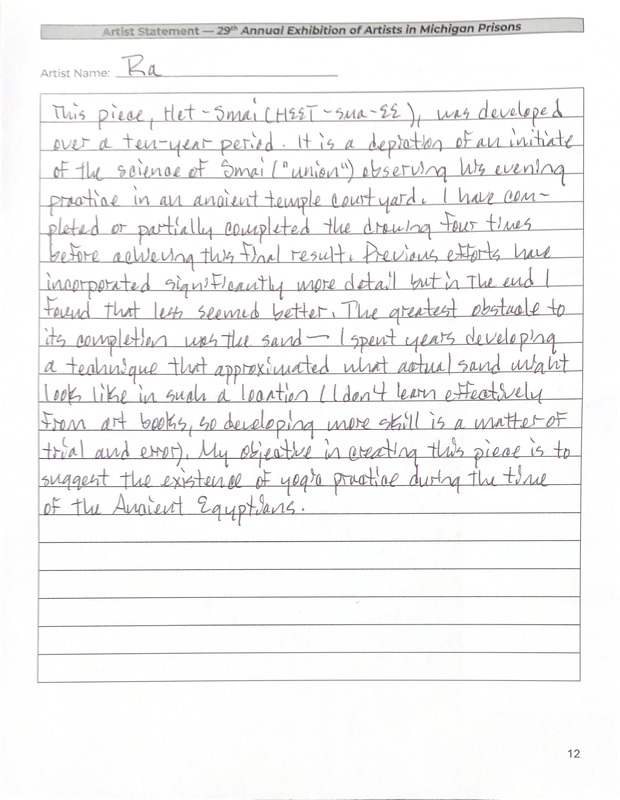 Artist Statement — 29th Annual Exhibition of Artists in Michigan Prisons
Artist Name: Ra
This piece, Het-Smai (HEET-sma-EE), was developed
over a ten-year period. It is a depiction of an initiate
of the science of Smai ("union") observing his evening
practice in an ancient temple courtyard. I have com-
pleted or partially completed the drawing four times
before achieving this final result. Previous efforts have
incorporated significantly more detail but in the end I
found that less seemed better. The greatest obstacle to
its completion was the sand — I spent years developing
a technique that approximated what actual sand might
look like in such a location (I don't learn effectively
from art books, so developing more skill is a matter of
trial and error). My objective in creating this piece is to
suggest the existence of yogic practice during the time
of the Ancient Egyptians.
12